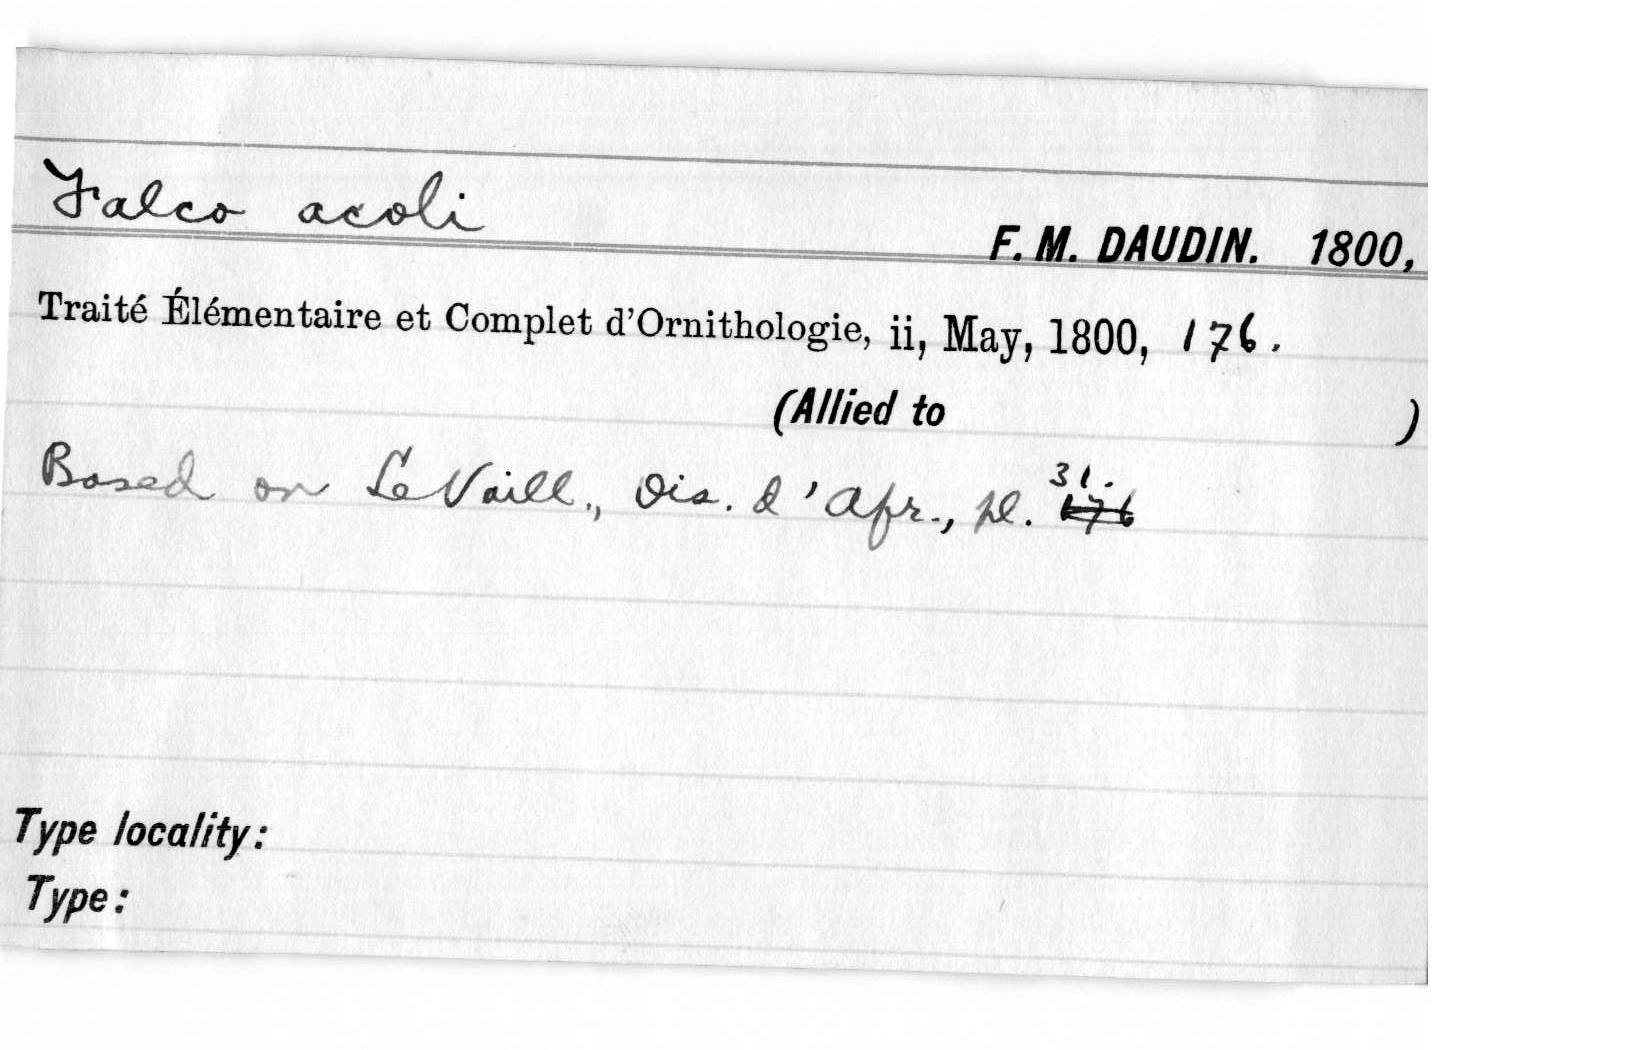 Falco acoli
F. M. DAUDIN. 1800,
Traité Élémentaire et Complet d'Ornithologie, ii, May, 1800, 176.
(Allied to )
31.
Based on LeVaill., Ois. d'Afr., pl. 176
Type locality:
Type: